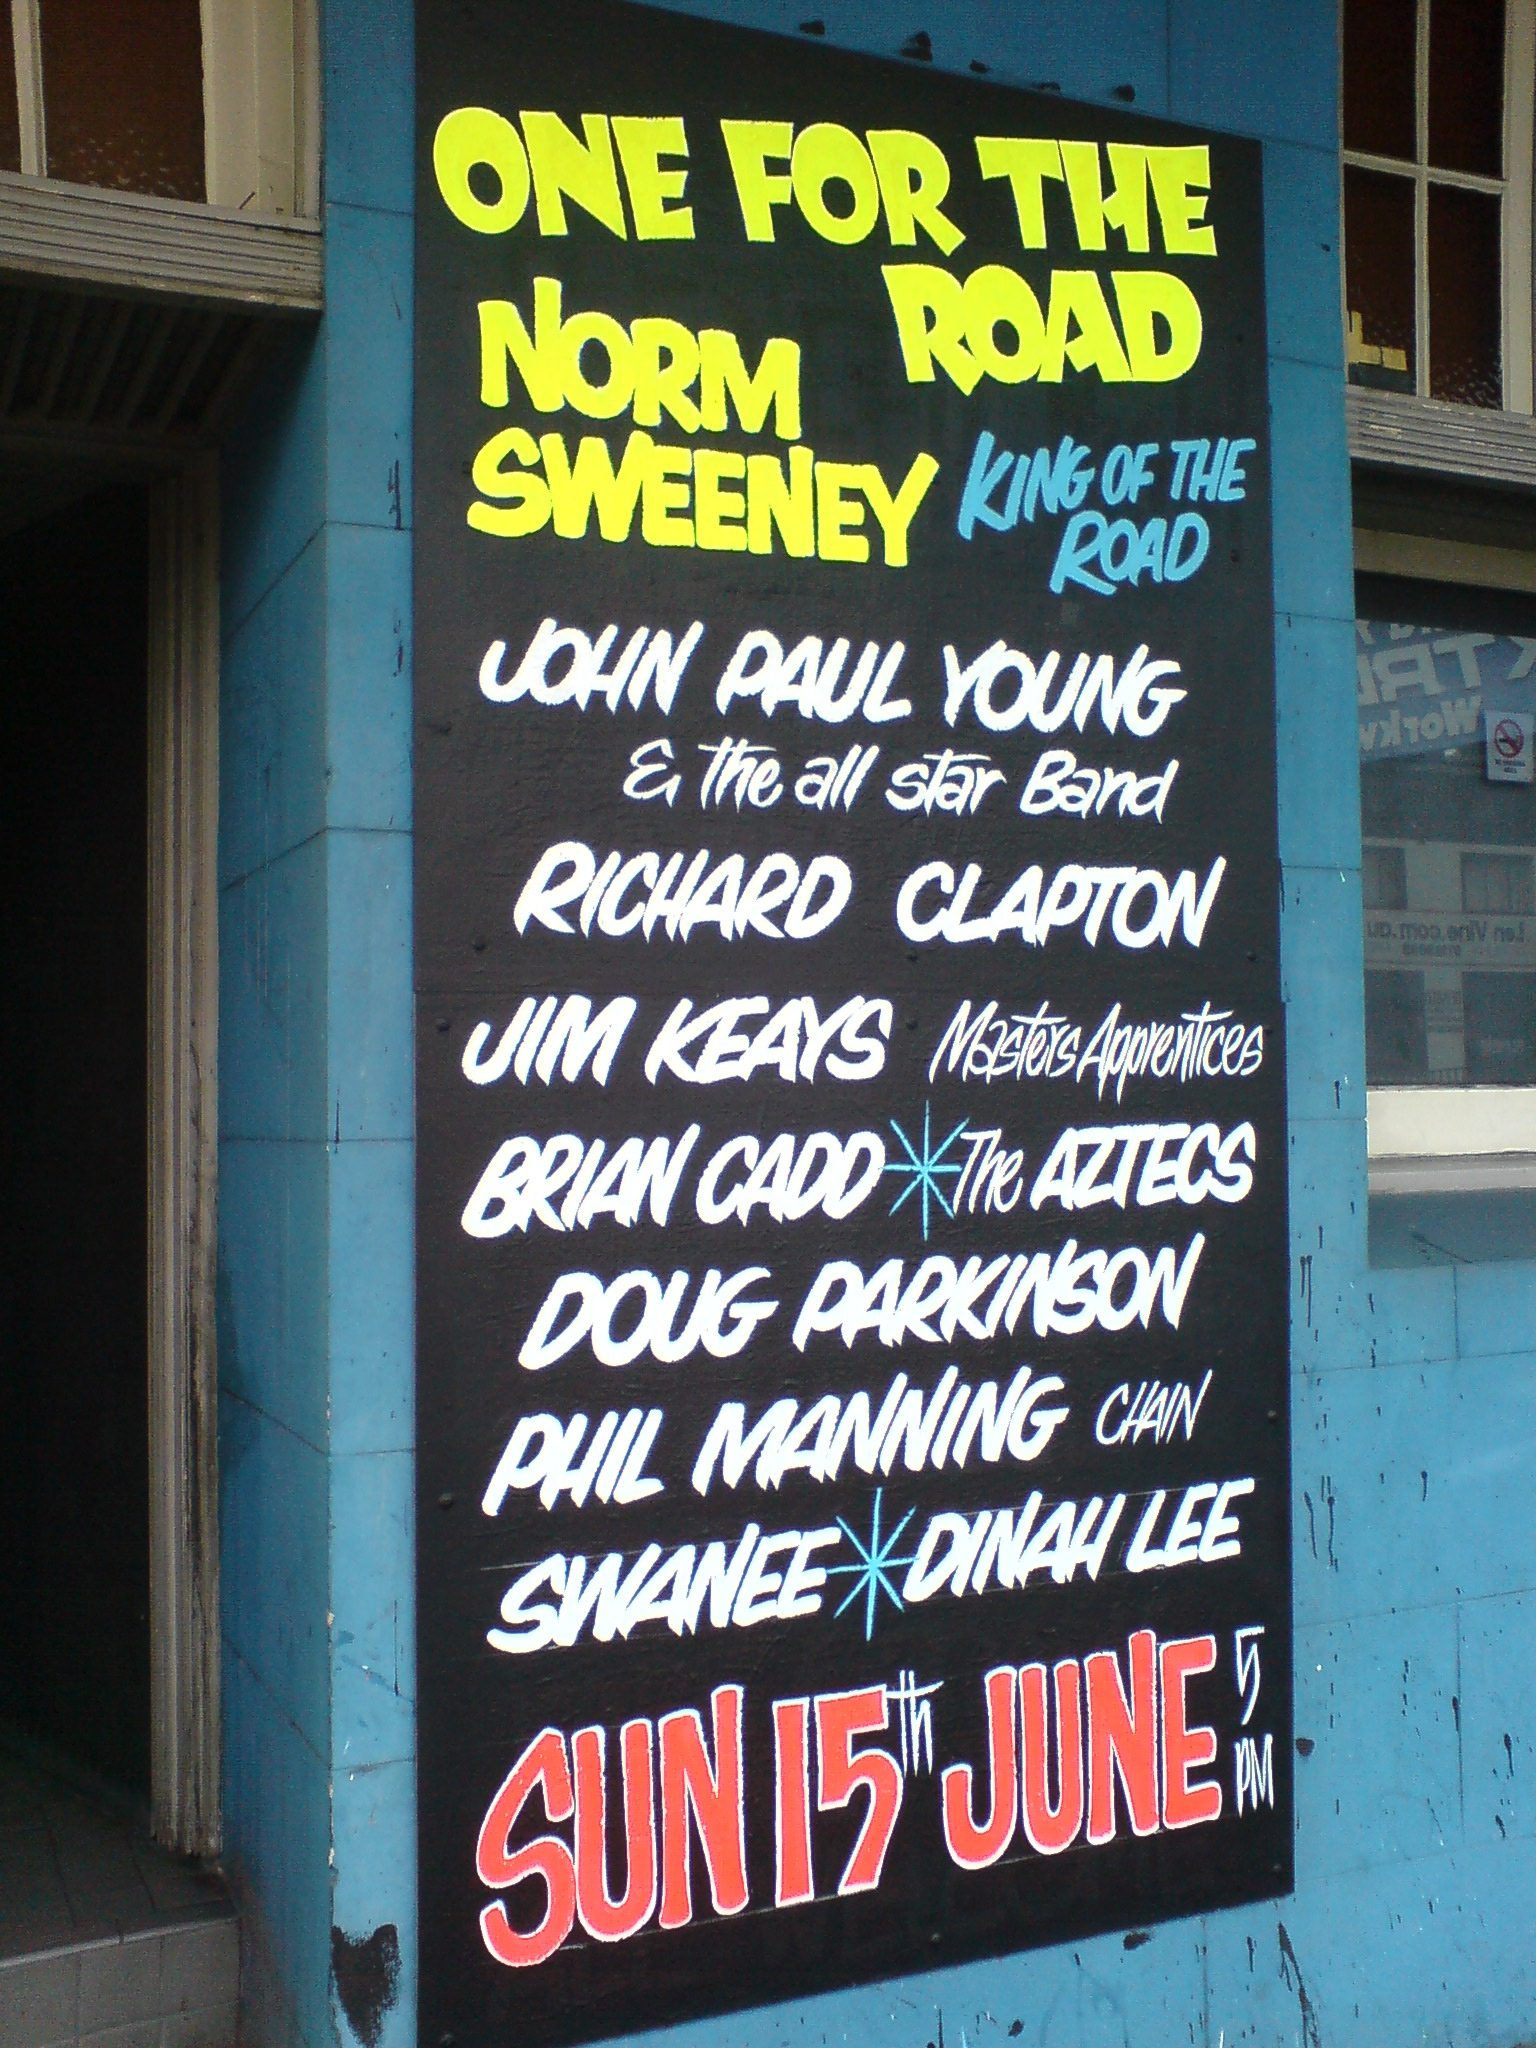 ONE FOR THE
ROAD
NORM
SWEENEY
KING OF THE
ROAD
JOHN PAUL YOUNG
& the all star Band
RICHARD CLAPTON
JIM KEAYS Masters Apprentices
BRIAN CADD * The AZTECS
DOUG PARKINSON
PHIL MANNING CHAIN
SWANEE * DINAH LEE
SUN 15th JUNE 5
PM
Len Vine.com.au